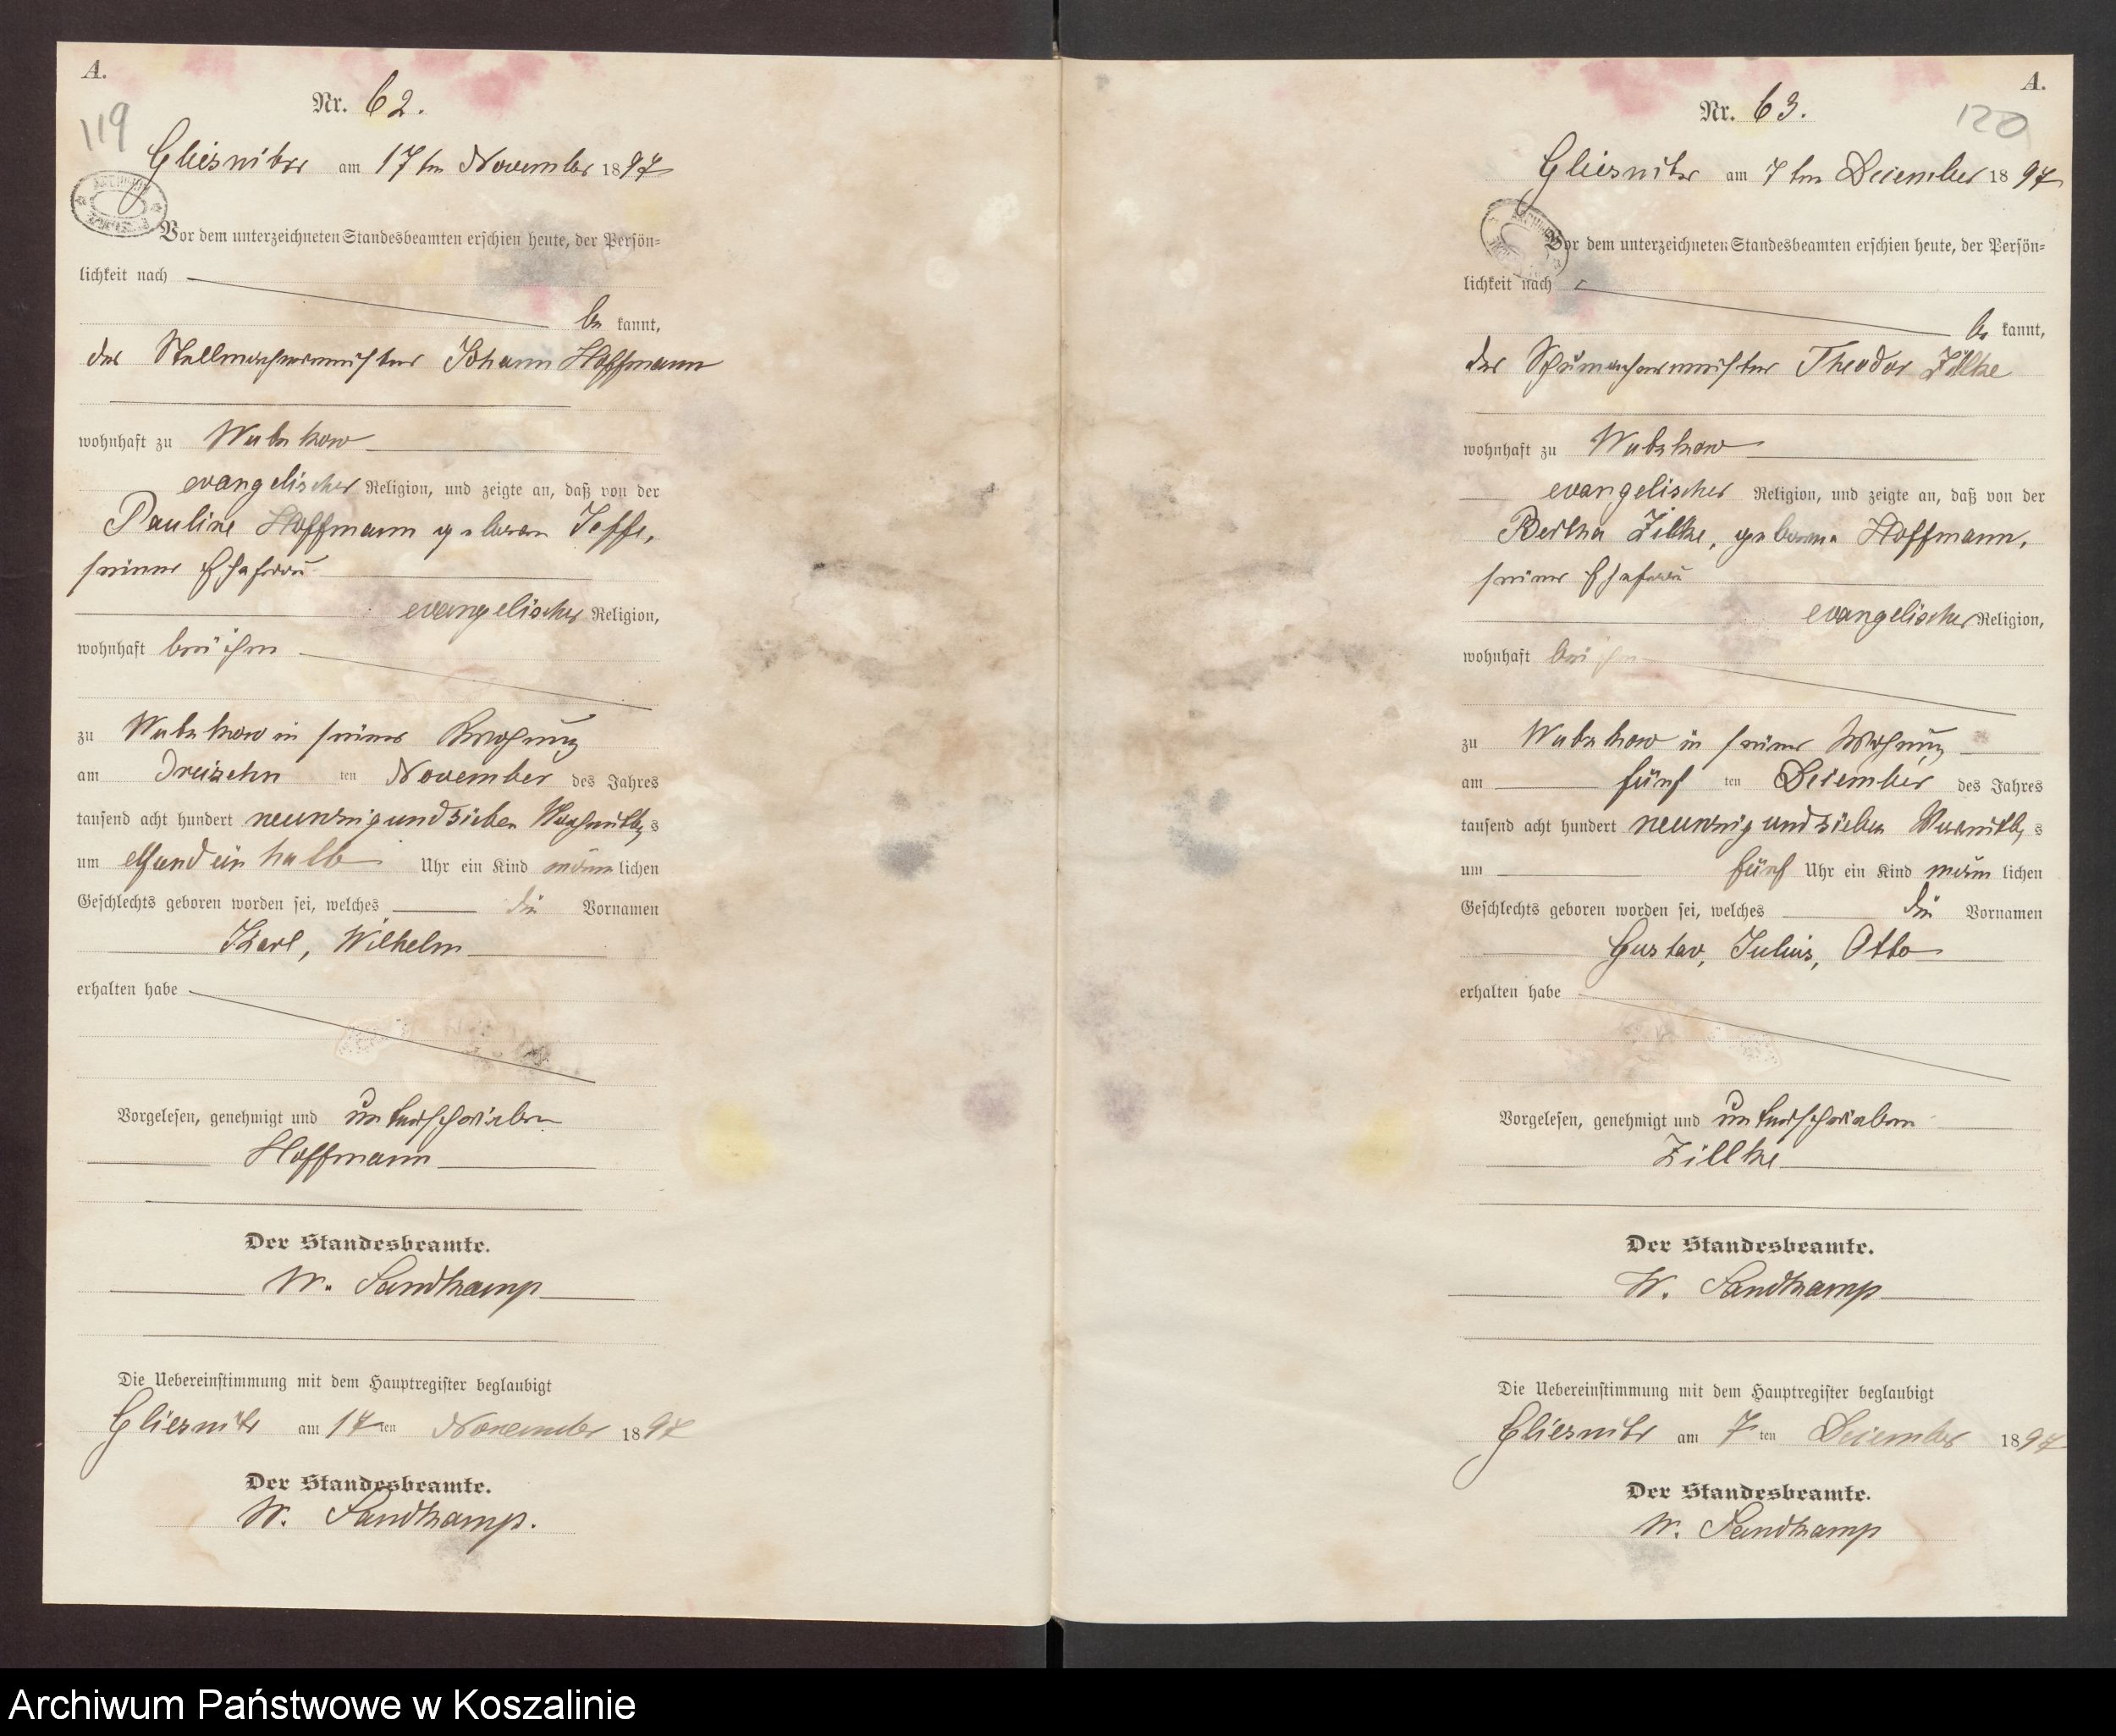 A.
119
Nr. 62.
Gliesnitz am 17ten November 1897
Vor dem unterzeichneten Standesbeamten erschien heute, der Persön=
lichkeit nach
be kannt,
der Stellmachermeister Johann Hoffmann
wohnhaft zu Wutzkow
evangelischer Religion, und zeigte an, daß von der
Pauline Hoffmann geboren
seiner Ehefrau
evangelischer Religion,
wohnhaft bei ihm
zu Wutzkow in seiner Wohnung
am Dreizehn ten November des Jahres
tausend acht hundert neunzig und sieben Nachmittags
um elf und ein halb Uhr ein Kind männ lichen
Geschlechts geboren worden sei, welches die Vornamen
Karl, Wilhelm
erhalten habe
Vorgelesen, genehmigt und unterschrieben
Hoffmann
Der Standesbeamte.
W. Sandkamp
Die Uebereinstimmung mit dem Hauptregister beglaubigt
Gliesnitz am 17ten November 1897
Der Standesbeamte.
W. Sandkamp.
A.
120
Nr. 63.
Gliesnitz am 7ten Dezember 1897
Vor dem unterzeichneten Standesbeamten erschien heute, der Persön=
lichkeit nach
be kannt,
der Schumachermeister Theodor Zillke
wohnhaft zu Wutzkow
evangelischer Religion, und zeigte an, daß von der
Bertha Zillke, geborene Hoffmann,
seiner Ehefrau
evangelischer Religion,
wohnhaft bei ihm
zu Wutzkow in seiner Wohnung
am fünf ten Dezember des Jahres
tausend acht hundert neunzig und sieben Vormittags
um fünf Uhr ein Kind männ lichen
Geschlechts geboren worden sei, welches die Vornamen
Gustav, Julius, Otto
erhalten habe
Vorgelesen, genehmigt und unterschrieben
Zillke
Der Standesbeamte.
W. Sandkamp
Die Uebereinstimmung mit dem Hauptregister beglaubigt
Gliesnitz am 7ten Dezember 1897
Der Standesbeamte.
W. Sandkamp
Archiwum Państwowe w Koszalinie